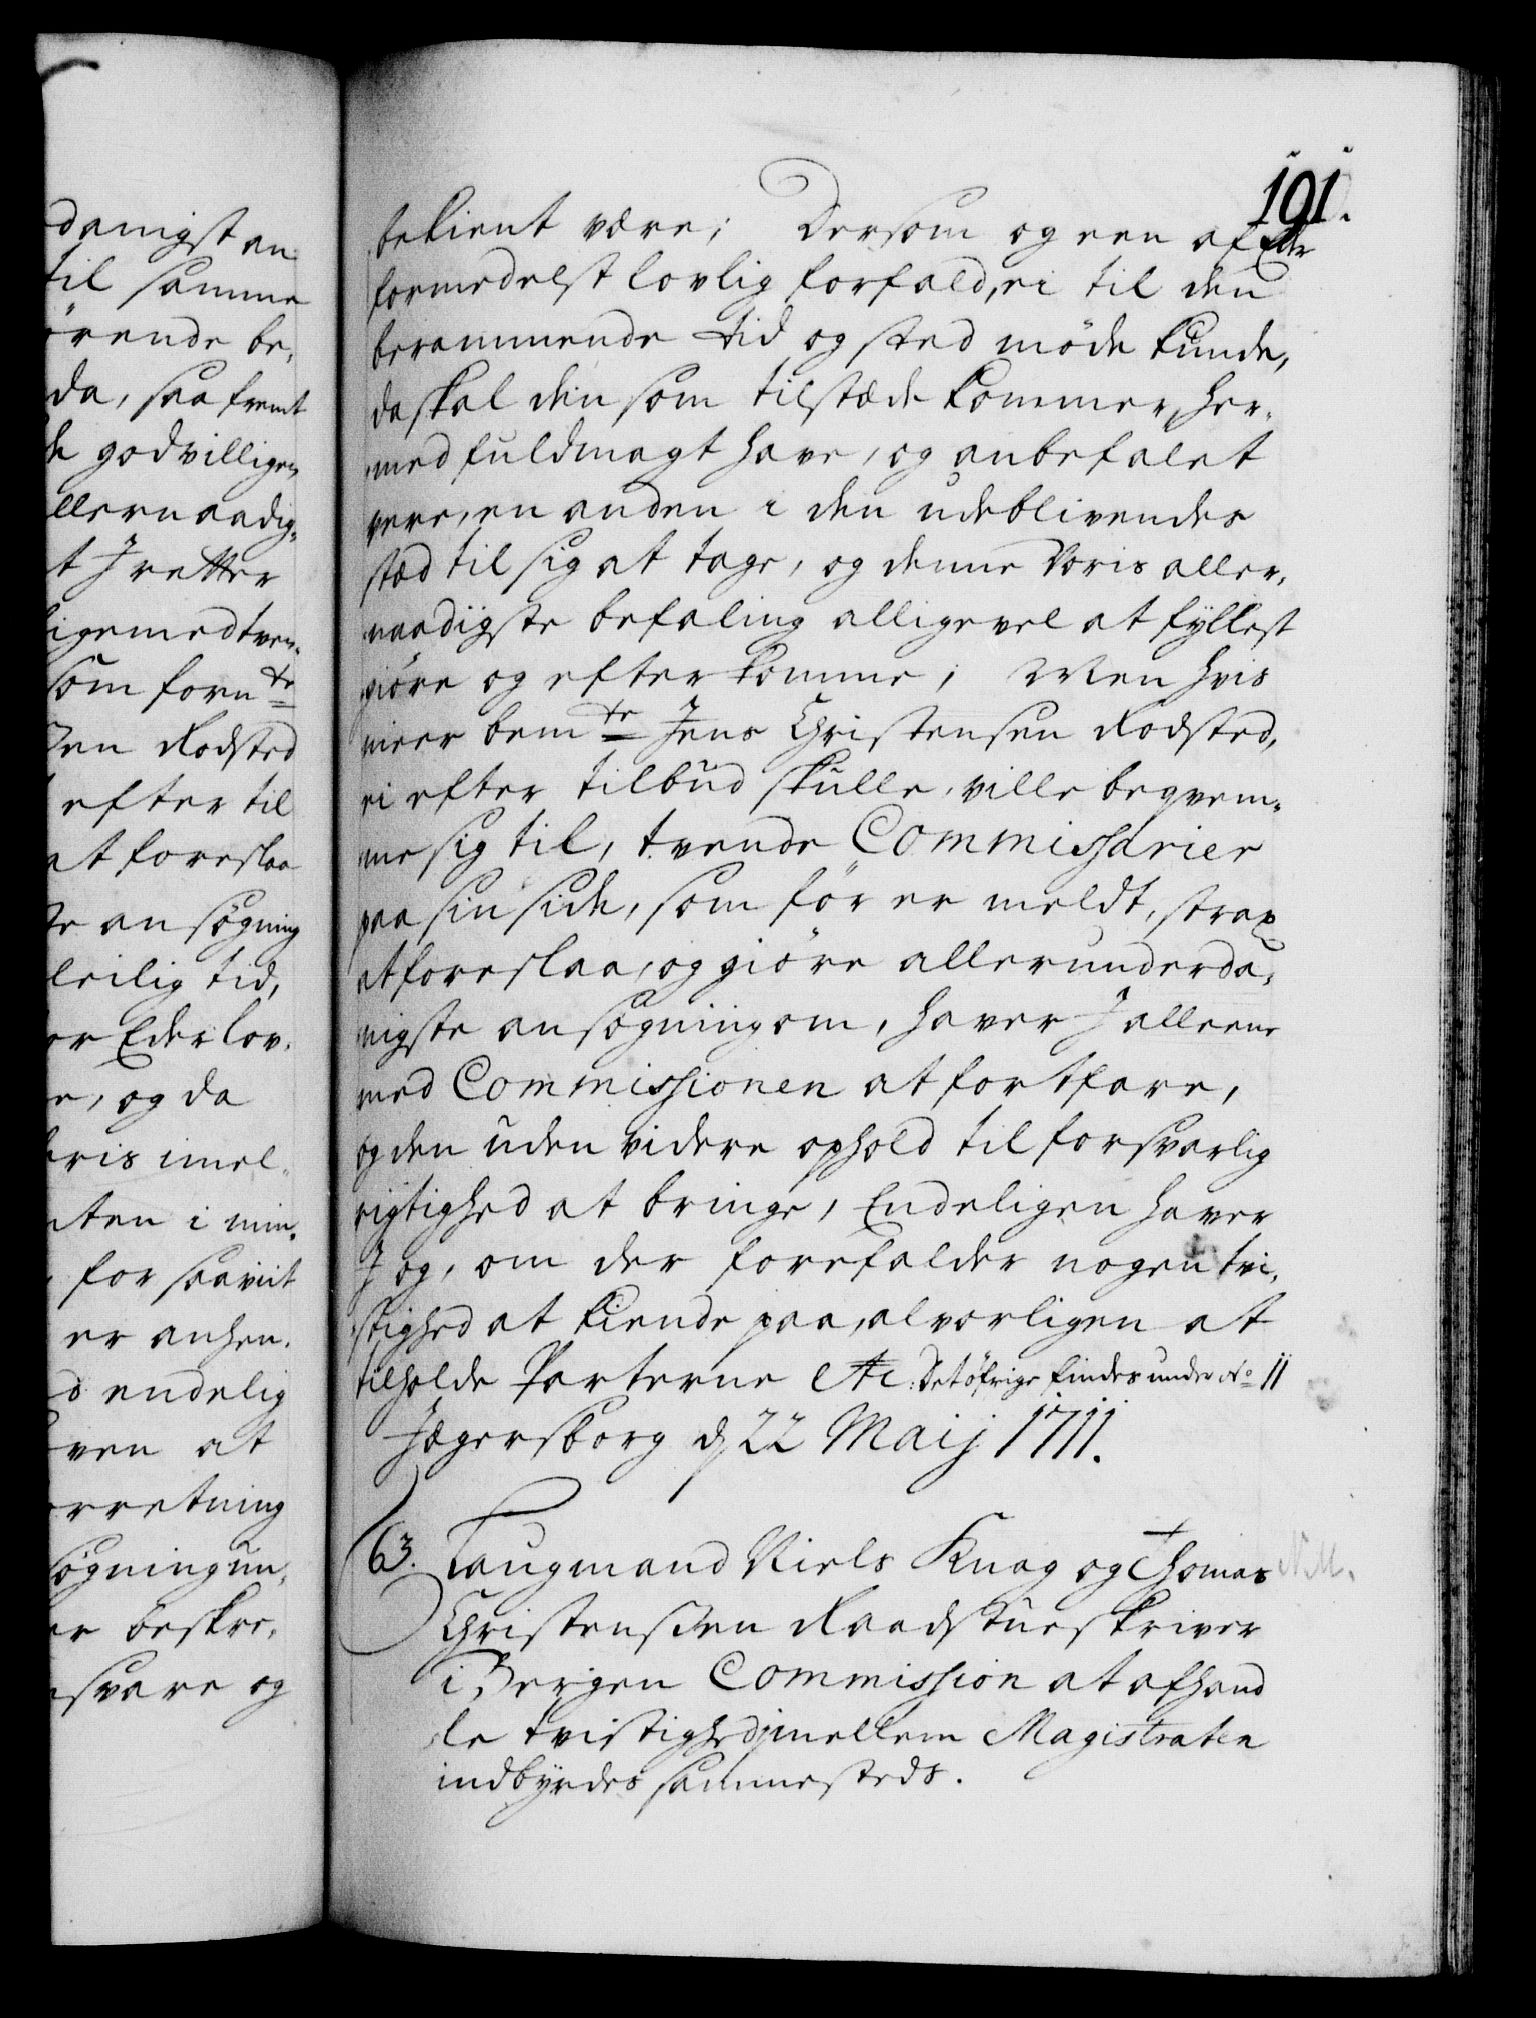 191.
danigst an
til samme
örende be,
da, saa fremt
de godvilligen
llernaadig,
t I retter
ligemedtven,
som forn te
sen Rodsted
efter til
at foreslaa
te ansögning
leilig tid,
or Eder lov,
e, og da
bris imel,
ten i min,
for saavit
er anhen,
d endelig
ven at
rretning
sögning un,
er beskre,
svare og
bekient være; Dersom og een af Eder
formedelst lovlig forfald, ei til den
berammende tid og sted möde kunde,
da skal den som tilstæde kommer, her,
med fuldmagt have, og anbefalet
vere, en anden i den udeblivendes
stæd til sig at tage, og denne Voris aller,
naadigste befaling alligevel at fyllest
giöre og efterkomme; Men hvis
meer bem te Jens Christensen Rodsted,
ei efter tilbud skulle, ville beqvem,
me sig til, tvende Commissarier
paa sin side, som för er meldt, strax
at foreslaa, og giöre allerunderda,
nigste ansögning om, haver I alleene
med Commissionen at fortfare,
og den uden videre ophold til forsvarlig
rigtighed at bringe, Endeligen haver
I og, om der forefalder nogen tvi,
stighed at kiende paa, alvorligen at
tilholde Parterne etc: Det öfrige findes under No 11
Jægersborg d 22 Maij 1711.
63. Laugmand Niels Knag og Thomas
N.M.
Christensen Raadstueskriver
i Bergen Commission at afhand
le tvistighed imellem Magistraten
indbyrdes sammesteds.